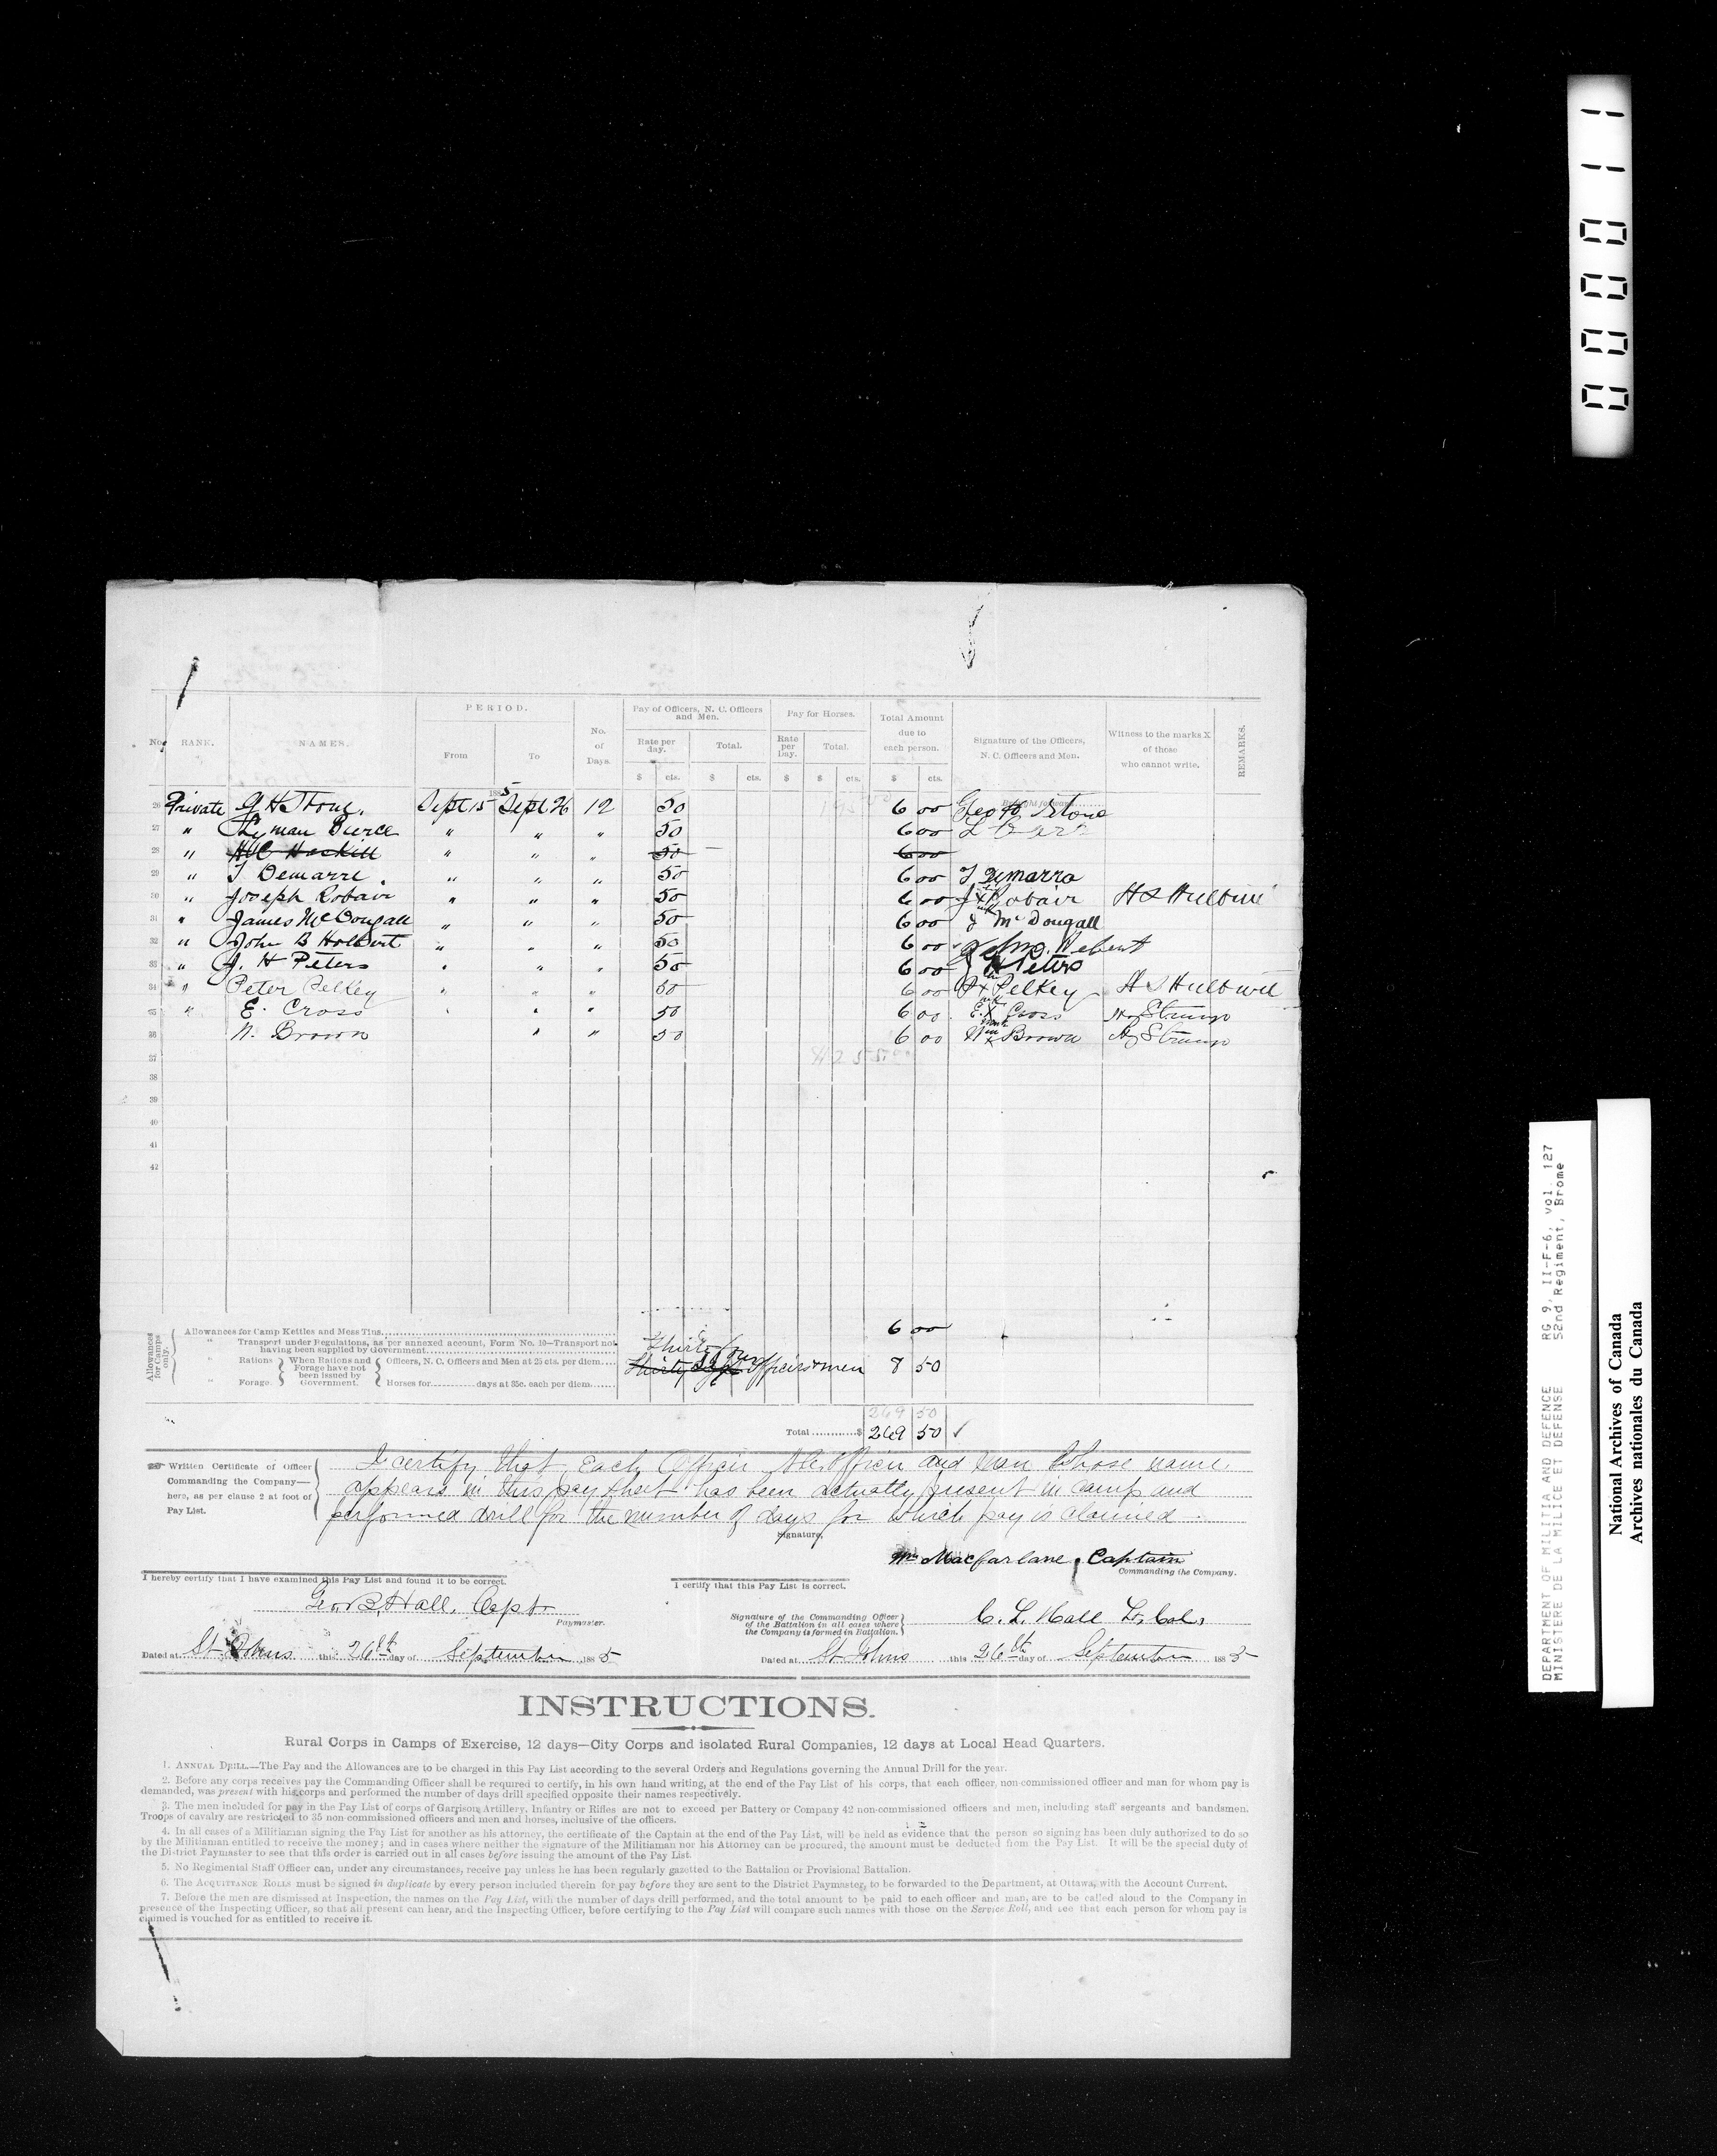 0 0 0 0 1 1
PERIOD.
Pay of Officers, N. C. Officers and Men.
Pay for Horses.
Total Amount due to each person.
No. RANK. NAMES. From To No. of Days. Rate per day. Total. Rate per Day. Total. Signature of the Officers, N. C. Officers and Men. Witness to the marks X of those who cannot write. REMARKS.
$ cts. $ cts. $ $ cts. $ cts.
1885
Brought forward
26 Private G H Stone. Sept 15 Sept 26 12 50 6 00 Geo H. Stone
27 " Lyman Pierce " " " 50 6 00
28 " H C Haskill " " " 50 6 00
29 " T Demarre. " " " 50 6 00 T Demarra
30 " Joseph Robair " " " 50 6 00 J X Robair H S Hulburt
31 " James McDougall " " " 50 6 00 J McDougall
32 " John B Holbert " " " 50 6 00
33 " J. H Peters " " " 50 6 00 J H Peters
34 " Peter Pelkey " " " 50 6 00 P X Pelkey H S Hulburt
35 " E. Cross " " " 50 6 00 E. X Cross
36 W. Brown " " 50 6 00 Wm X Brown
37
38
39
40
41
42
Allowances for Camps only.
Allowances for Camp Kettles and Mess Tins 6 00
" Transport under Regulations, as per annexed account, Form No. 10—Transport not having been supplied by Government
" Rations When Rations and Forage have not been issued by Government. Officers, N. C. Officers and Men at 25 cts. per diem Thirty four Officers & men 8 50
" Forage. Horses for days at 35c. each per diem
269 50
Total $ 269 50 ✓
Written Certificate of Officer Commanding the Company—here, as per clause 2 at foot of Pay List.
I certify that Each Officer N.C. Officer and man whose name
appears in this pay sheet has been actually present in camp and
performed drill for the number of days for which pay is claimed.
Signature,
Wm Macfarlane, Captain
Commanding the Company.
I hereby certify that I have examined this Pay List and found it to be correct.
I certify that this Pay List is correct.
Geo. B. Hall, Capt
Paymaster.
Signature of the Commanding Officer of the Battalion in all cases where the Company is formed in Battalion.
C. L. Hall Lt. Col.
Dated at St. Johns this 26th day of September 1885
Dated at St Johns this 26th day of September 1885
INSTRUCTIONS.
Rural Corps in Camps of Exercise, 12 days—City Corps and isolated Rural Companies, 12 days at Local Head Quarters.
1. ANNUAL DRILL.—The Pay and the Allowances are to be charged in this Pay List according to the several Orders and Regulations governing the Annual Drill for the year.
2. Before any corps receives pay the Commanding Officer shall be required to certify, in his own hand writing, at the end of the Pay List of his corps, that each officer, non-commissioned officer and man for whom pay is
demanded, was present with his corps and performed the number of days drill specified opposite their names respectively.
3. The men included for pay in the Pay List of corps of Garrison Artillery, Infantry or Rifles are not to exceed per Battery or Company 42 non-commissioned officers and men, including staff sergeants and bandsmen.
Troops of cavalry are restricted to 35 non-commissioned officers and men and horses, inclusive of the officers.
4. In all cases of a Militiaman signing the Pay List for another as his attorney, the certificate of the Captain at the end of the Pay List, will be held as evidence that the person so signing has been duly authorized to do so
by the Militiaman entitled to receive the money; and in cases where neither the signature of the Militiaman nor his Attorney can be procured, the amount must be deducted from the Pay List. It will be the special duty of
the District Paymaster to see that this order is carried out in all cases before issuing the amount of the Pay List.
5. No Regimental Staff Officer can, under any circumstances, receive pay unless he has been regularly gazetted to the Battalion or Provisional Battalion.
6. The ACQUITTANCE ROLLS must be signed in duplicate by every person included therein for pay before they are sent to the District Paymaster, to be forwarded to the Department, at Ottawa, with the Account Current.
7. Before the men are dismissed at Inspection, the names on the Pay List, with the number of days drill performed, and the total amount to be paid to each officer and man, are to be called aloud to the Company in
presence of the Inspecting Officer, so that all present can hear, and the Inspecting Officer, before certifying to the Pay List will compare such names with those on the Service Roll, and see that each person for whom pay is
claimed is vouched for as entitled to receive it.
DEPARTMENT OF MILITIA AND DEFENCE RG 9, II-F-6, vol. 127
MINISTERE DE LA MILICE ET DEFENSE 52nd Regiment, Brome
National Archives of Canada
Archives nationales du Canada